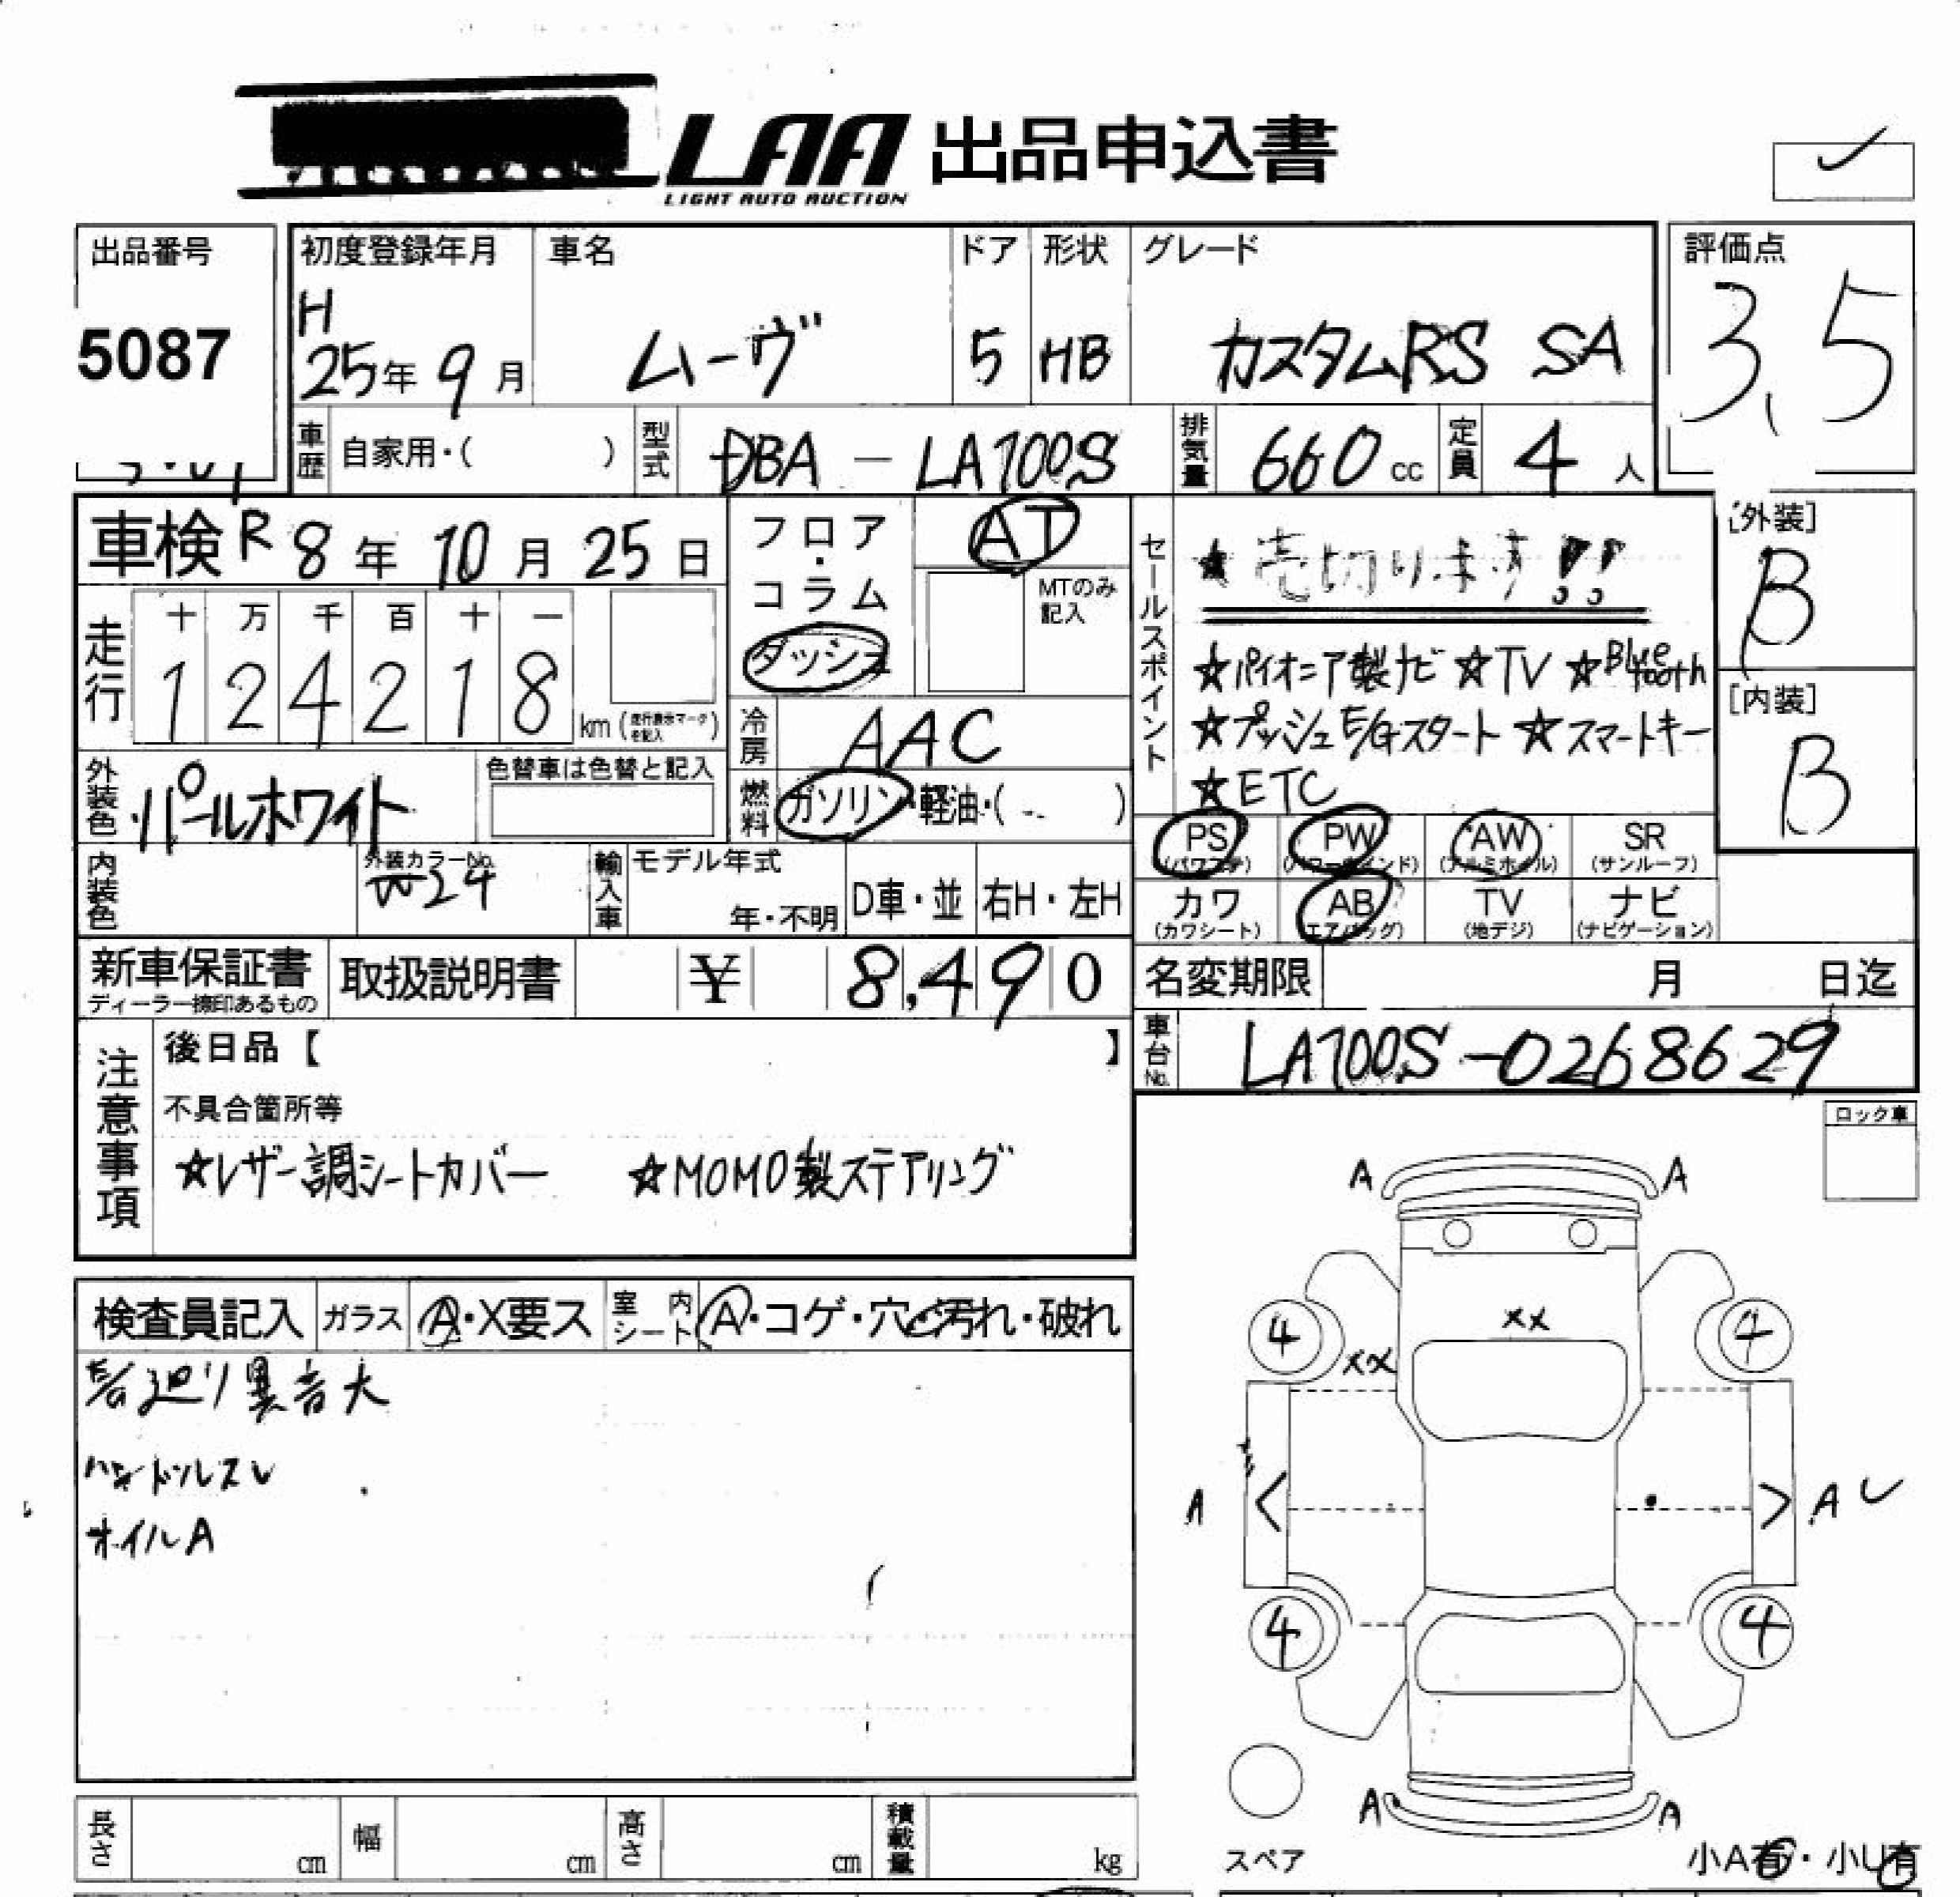 LAA 出品申込書
LIGHT AUTO AUCTION
出品番号
5087
初度登録年月
H
25年 9月
車名
ムーヴ
ドア
5
形状
HB
グレード
カスタムRS SA
評価点
3.5
車歴 自家用・( )
型式 DBA - LA100S
排気量 660 cc
定員 4 人
車検 R 8年 10月 25日
走行
十 万 千 百 十 一
1 2 4 2 1 8 km (走行表示マークを記入)
フロア・コラム
ダッシュ
AT
MTのみ記入
冷房 AAC
燃料 ガソリン・軽油・( )
セールスポイント
★売切ります!!
☆パイオニア製ナビ ☆TV ☆Bluetooth
☆プッシュE/Gスタート ☆スマートキー
☆ETC
[外装]
B
[内装]
B
外装色 パールホワイト
色替車は色替と記入
PS (パワステ)
PW (パワーウインド)
AW (アルミホイル)
SR (サンルーフ)
カワ (カワシート)
AB (エアバッグ)
TV (地デジ)
ナビ (ナビゲーション)
内装色
外装カラーNo.
W24
輸入車
モデル年式
年・不明
D車・並
右H・左H
新車保証書
ディーラー捺印あるもの
取扱説明書
¥ 8,490
名変期限 月 日迄
車台No. LA100S-0268629
注意事項
後日品【 】
不具合箇所等
☆レザー調シートカバー ☆MOMO製ステアリング
ロック車
検査員記入 ガラス A・X要ス 室内シート A・コゲ・穴・汚れ・破れ
廻り異音大
ハンドルスレ
オイルA
A A
4 XX 4
XX
A A
4 4
A A
長さ cm 幅 cm 高さ cm 積載量 kg
スペア
小A有・小U有